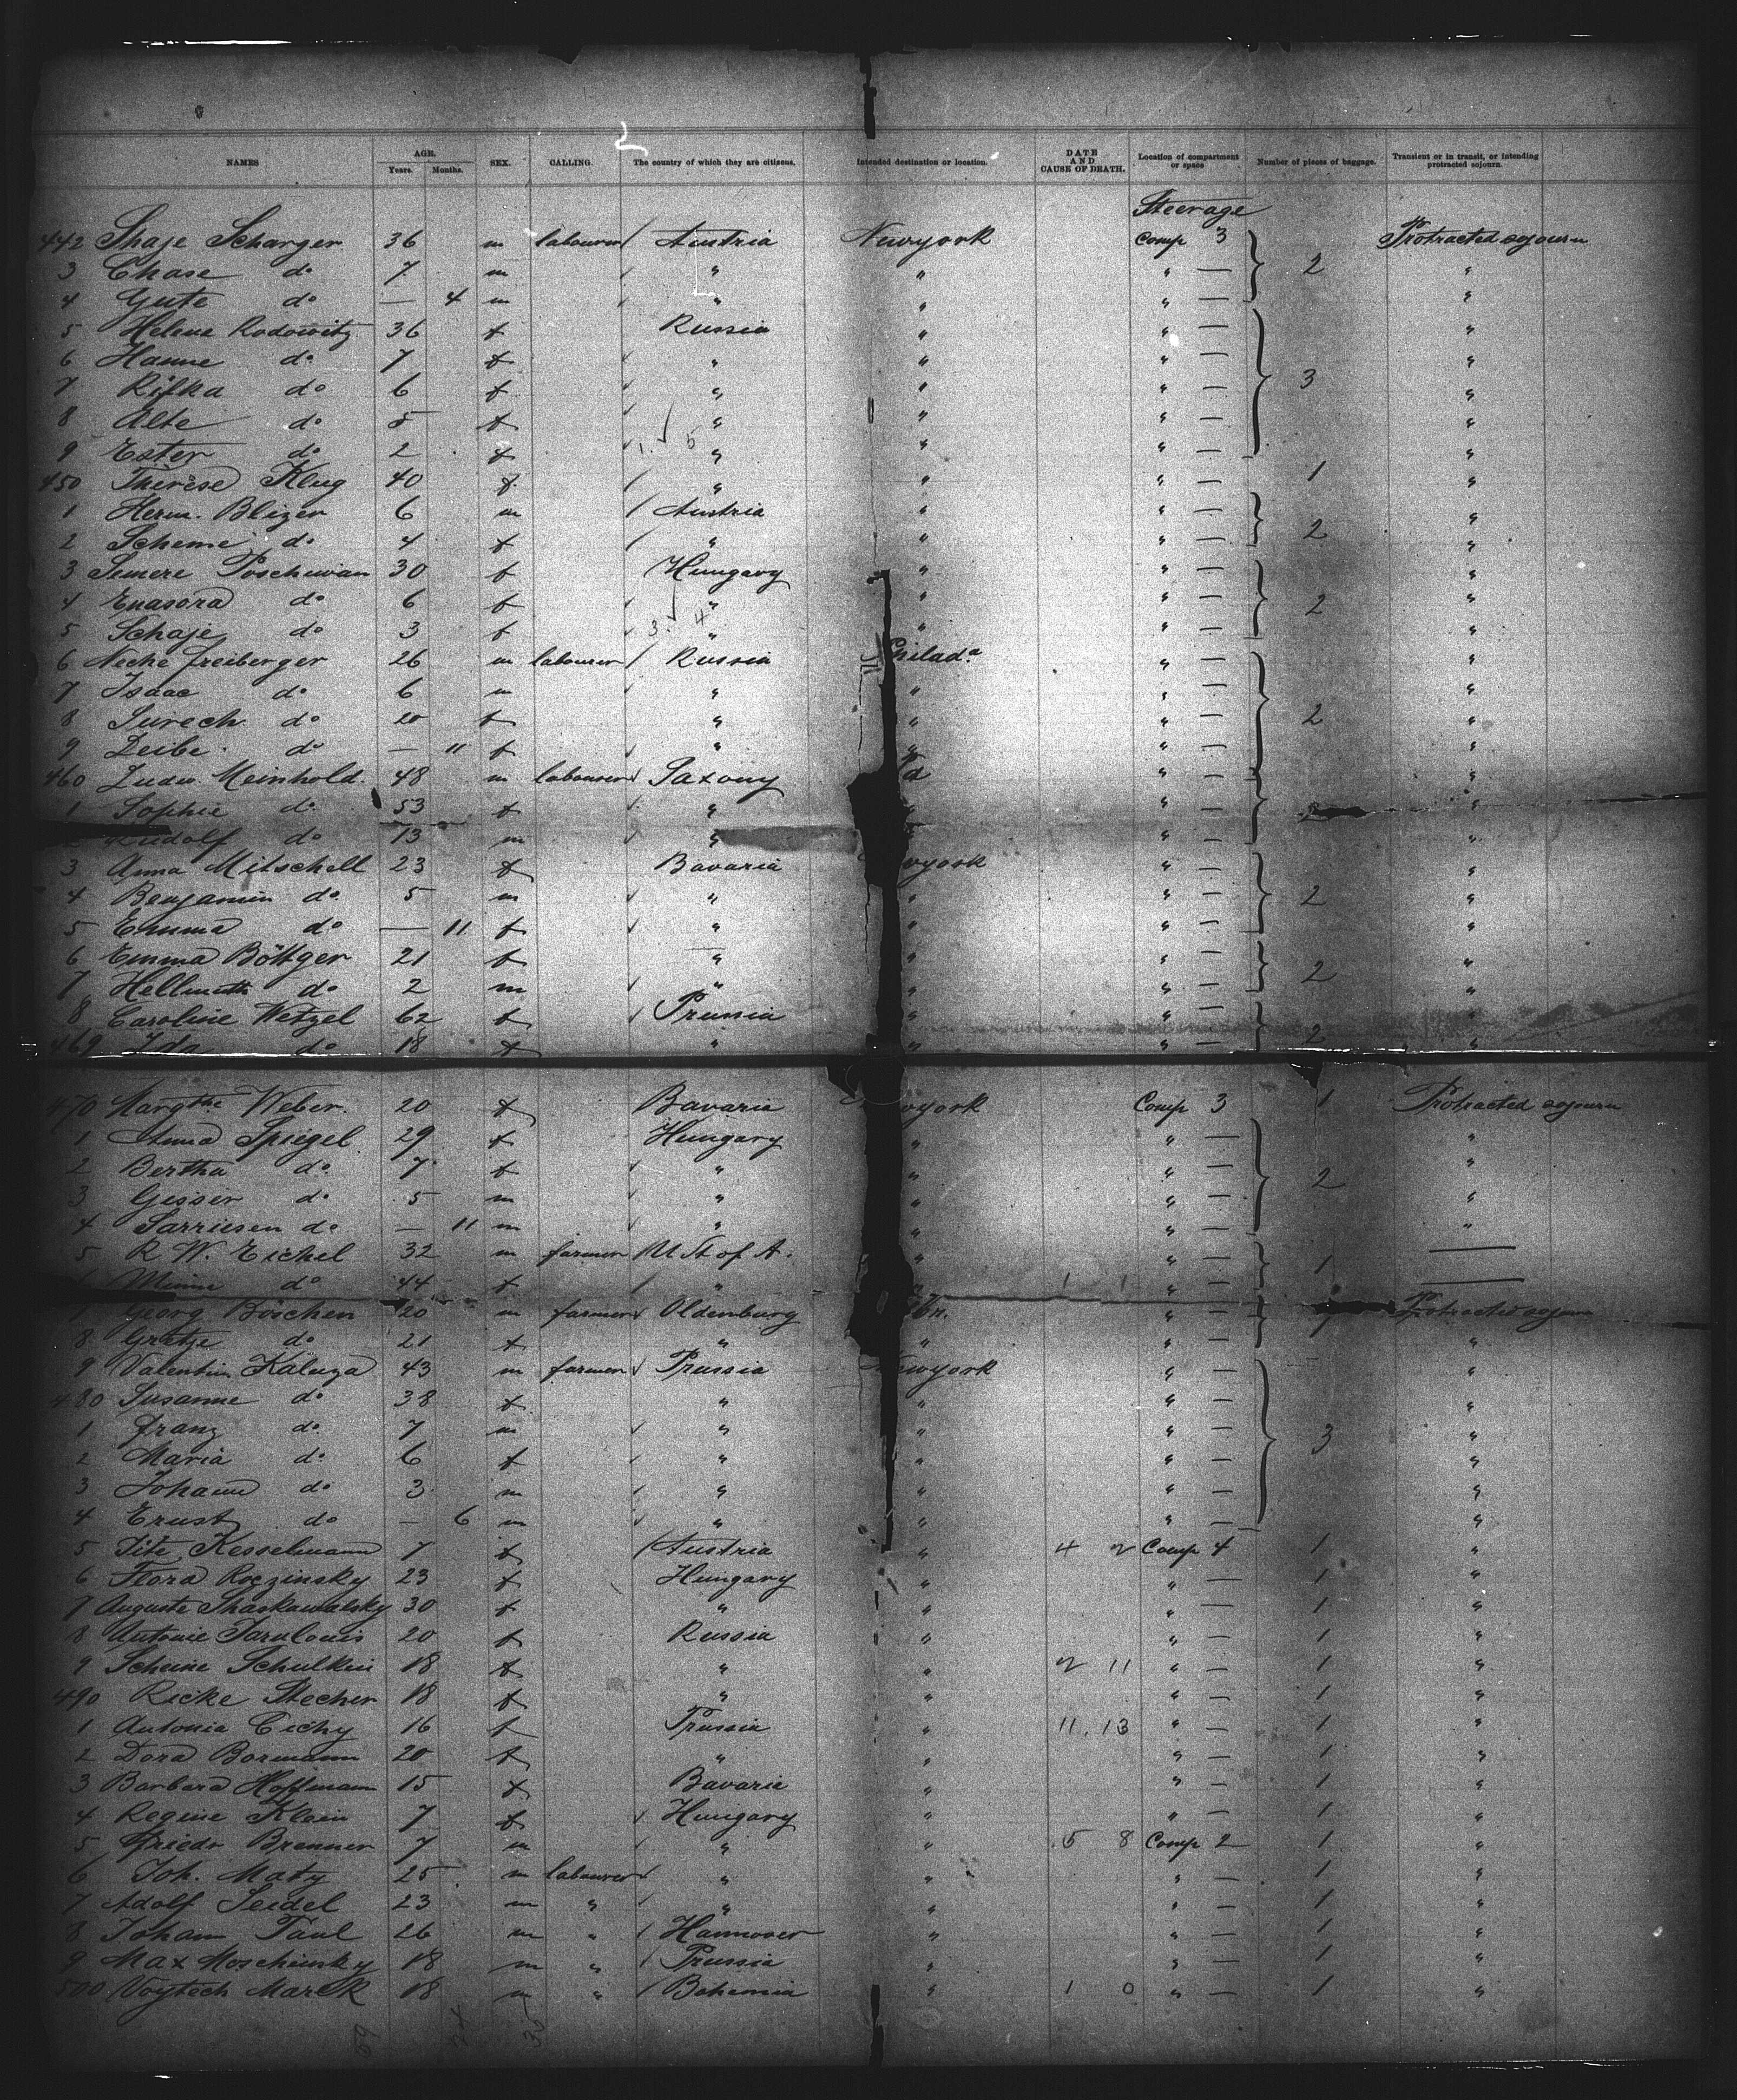 NAMES AGE. Years. Months. SEX. CALLING. The country of which they are citizens. Intended destination or location. DATE AND CAUSE OF DEATH. Location of compartment or space Number of pieces of baggage. Transient or in transit, or intending protracted sojourn.
Steerage
442 Shaje Scharger 36 m labourer Austria Newyork Comp 3 Protracted sojourn
3 Chase do 7 m " " " — 2 "
4 Gute do — 4 m " " " — "
5 Helene Rodowitz 36 f Russia " " — "
6 Hanne do 7 f " " " — "
7 Rifka do 6 f " " " — 3 "
8 Alte do 5 f " " " — "
9 Ester do 2 f " " " — "
450 Therese Klug 40 f " " " — 1 "
1 Herm. Blizer 6 m Austria " " — "
2 Scheme do 4 f " " " — 2 "
3 Semere Poschewan 30 f Hungary " " — "
4 Enasora do 6 f " " " — 2 "
5 Schaje do 3 f " " " — "
6 Neche Freiberger 26 m labourer Russia Philada " — "
7 Isaac do 6 m " " " — "
8 Surech do 20 f " " " — 2 "
9 Leibe do — 11 f " " " — "
460 Ludw. Meinhold 48 m labourer Saxony " — "
1 Sophie do 53 f " " — "
Rudolf do 13 m " " — "
3 Anna Mitschell 23 f Bavaria wyork " — "
4 Benjamin do 5 m " " " — 2 "
5 Emma do — 11 f " " " — "
6 Emma Böttger 21 f " " " — "
7 Hellmuth do 2 m " " " — 2 "
8 Caroline Wetzel 62 f Prussia " " — "
469 Ida do 18 f " " " — 2 "
470 Margthe Weber 20 f Bavaria wyork Comp 3 1 Protracted sojourn
1 Anna Spiegel 29 f Hungary " " — "
2 Bertha do 7 f " " " — "
3 Gesser do 5 m " " " — 2 "
4 Sarriesen do — 11 m " " " — "
5 R W. Eichel 32 m farmer U St of A. " " — 1 —
Minna do 44 f " " " — —
7 Georg Böschen 20 m farmer Oldenburg " — 1 Protracted sojourn
8 Gretje do 21 f " " — "
9 Valentin Kaluza 43 m farmer Prussia Newyork " — "
480 Susanne do 38 f " " " — "
1 Franz do 7 m " " " — 3 "
2 Maria do 6 f " " " — "
3 Johann do 3 m " " " — "
4 Ernst do — 6 m " " " — "
5 Tite Kesselmann 7 f Austria " 4 2 Comp 4 1 "
6 Flora Roczinsky 23 f Hungary " " — 1 "
7 Auguste Shaskawalsky 30 f " " " — 1 "
8 Antonie Tarulouis 20 f Russia " " — 1 "
9 Scheine Schulkin 18 f " " 2 11 " — 1 "
490 Ricke Stecher 18 f " " " — 1 "
1 Antonia Cichy 16 f Prussia " 11. 13 " — 1 "
2 Dora Bormann 20 f " " " — 1 "
3 Barbara Hoffmann 15 f Bavaria " " — 1 "
4 Regine Klein 7 f Hungary " " — 1 "
5 Friedr Brenner 7 m " " 5 8 Comp 2 1 "
6 Joh. Maty 25 m labourer " " " — 1 "
7 Adolf Seidel 23 m " " " " — 1 "
8 Johann Paul 26 m " Hannover " " — 1 "
9 Max Moschinsky 18 m " Prussia " " — 1 "
500 Voytech Marek 18 m " Bohemia " 1 0 " — 1 "